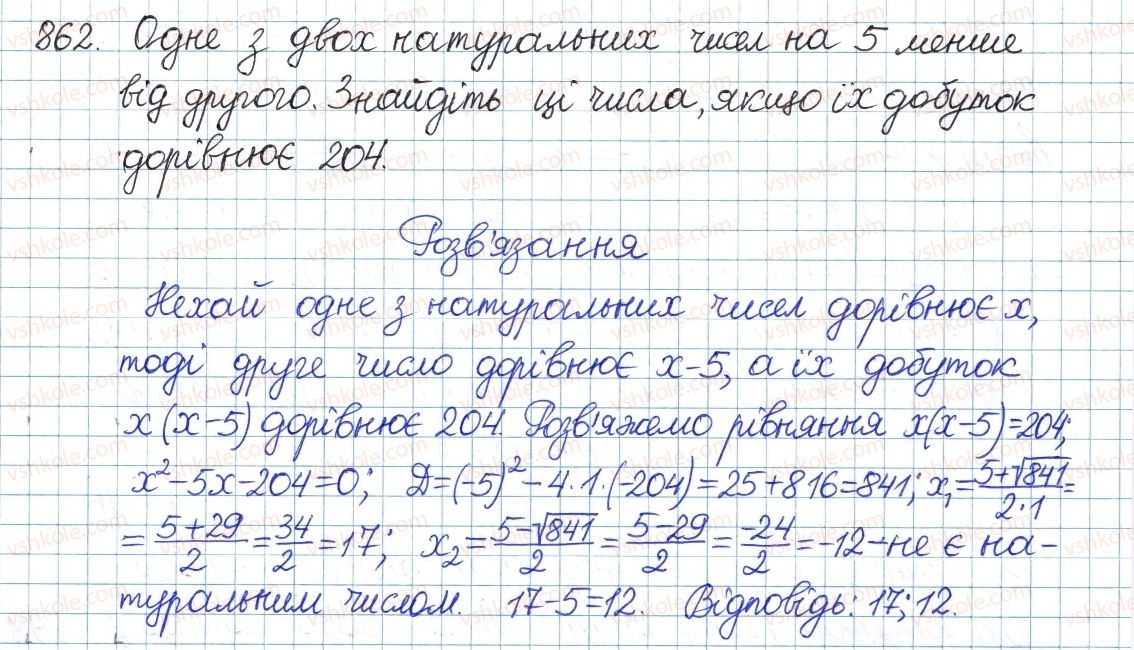 862. Одне з двох натуральних чисел на 5 менше
від другого. Знайдіть ці числа, якщо їх добуток
дорівнює 204.
Розв'язання
Нехай одне з натуральних чисел дорівнює x,
тоді друге число дорівнює x-5, а їх добуток
x(x-5) дорівнює 204. Розв'яжемо рівняння x(x-5)=204;
x²-5x-204=0; Д=(-5)²-4·1·(-204)=25+816=841; x₁=(5+√841)/(2·1)=
=(5+29)/2=34/2=17; x₂=(5-√841)/2=(5-29)/2=-24/2=-12-не є на-
туральним числом. 17-5=12. Відповідь: 17; 12.